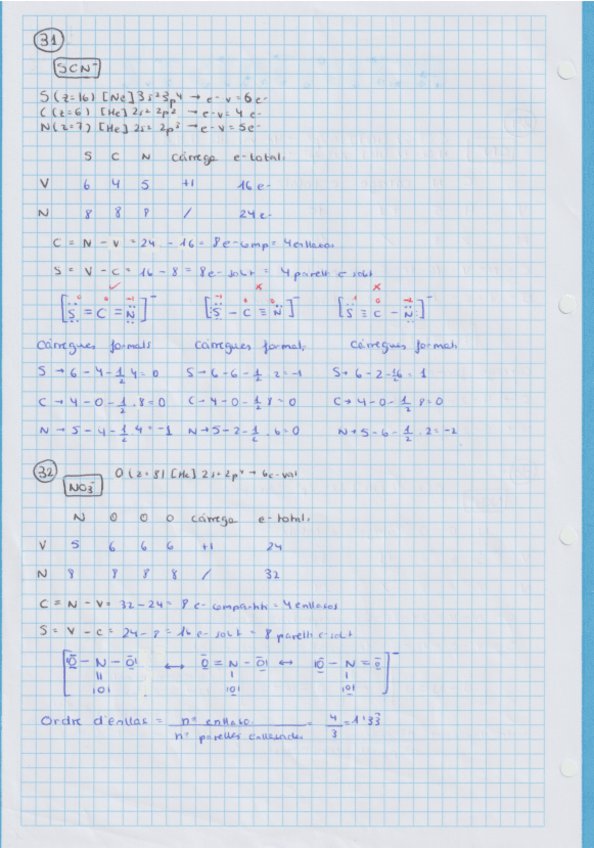 31
SCN⁻
S (z=16) [Ne] 3s² 3p⁴ → e- v = 6 e-
C (z=6) [He] 2s² 2p² → e- v = 4 e-
N (z=7) [He] 2s² 2p³ → e- v = 5 e-
S C N càrrega e- total.
V 6 4 5 +1 16 e-
N 8 8 8 / 24 e-
C = N - V = 24 - 16 = 8 e- comp = 4 enllaços
S = V - C = 16 - 8 = 8 e- solit = 4 parell e solit
✓ × ×
0 0 -1 -1 0 0 1 0 -2
[S = C = N]⁻ [S - C ≡ N]⁻ [S ≡ C - N]⁻
Càrregues formals càrregues formals càrregues formals
S → 6 - 4 - 1/2 4 = 0 S → 6 - 6 - 1/2 2 = -1 S → 6 - 2 - 1/2 6 = 1
C → 4 - 0 - 1/2 . 8 = 0 C → 4 - 0 - 1/2 8 = 0 C → 4 - 0 - 1/2 8 = 0
N → 5 - 4 - 1/2 . 4 = -1 N → 5 - 2 - 1/2 . 6 = 0 N → 5 - 6 - 1/2 . 2 = -2
32 O (z=8) [He] 2s² 2p⁴ → 6 e- val
NO₃⁻
N O O O càrrega e- total.
V 5 6 6 6 +1 24
N 8 8 8 8 / 32
C = N - V = 32 - 24 = 8 e- compartits = 4 enllaços
S = V - C = 24 - 8 = 16 e- solit = 8 parell e solit
[|O - N - O| ↔ O = N - O| ↔ |O - N = O]⁻
|| | |
|O| |O| |O|
Ordre d'enllaç = nº enllaços / nº parelles enllaçades = 4/3 = 1'33